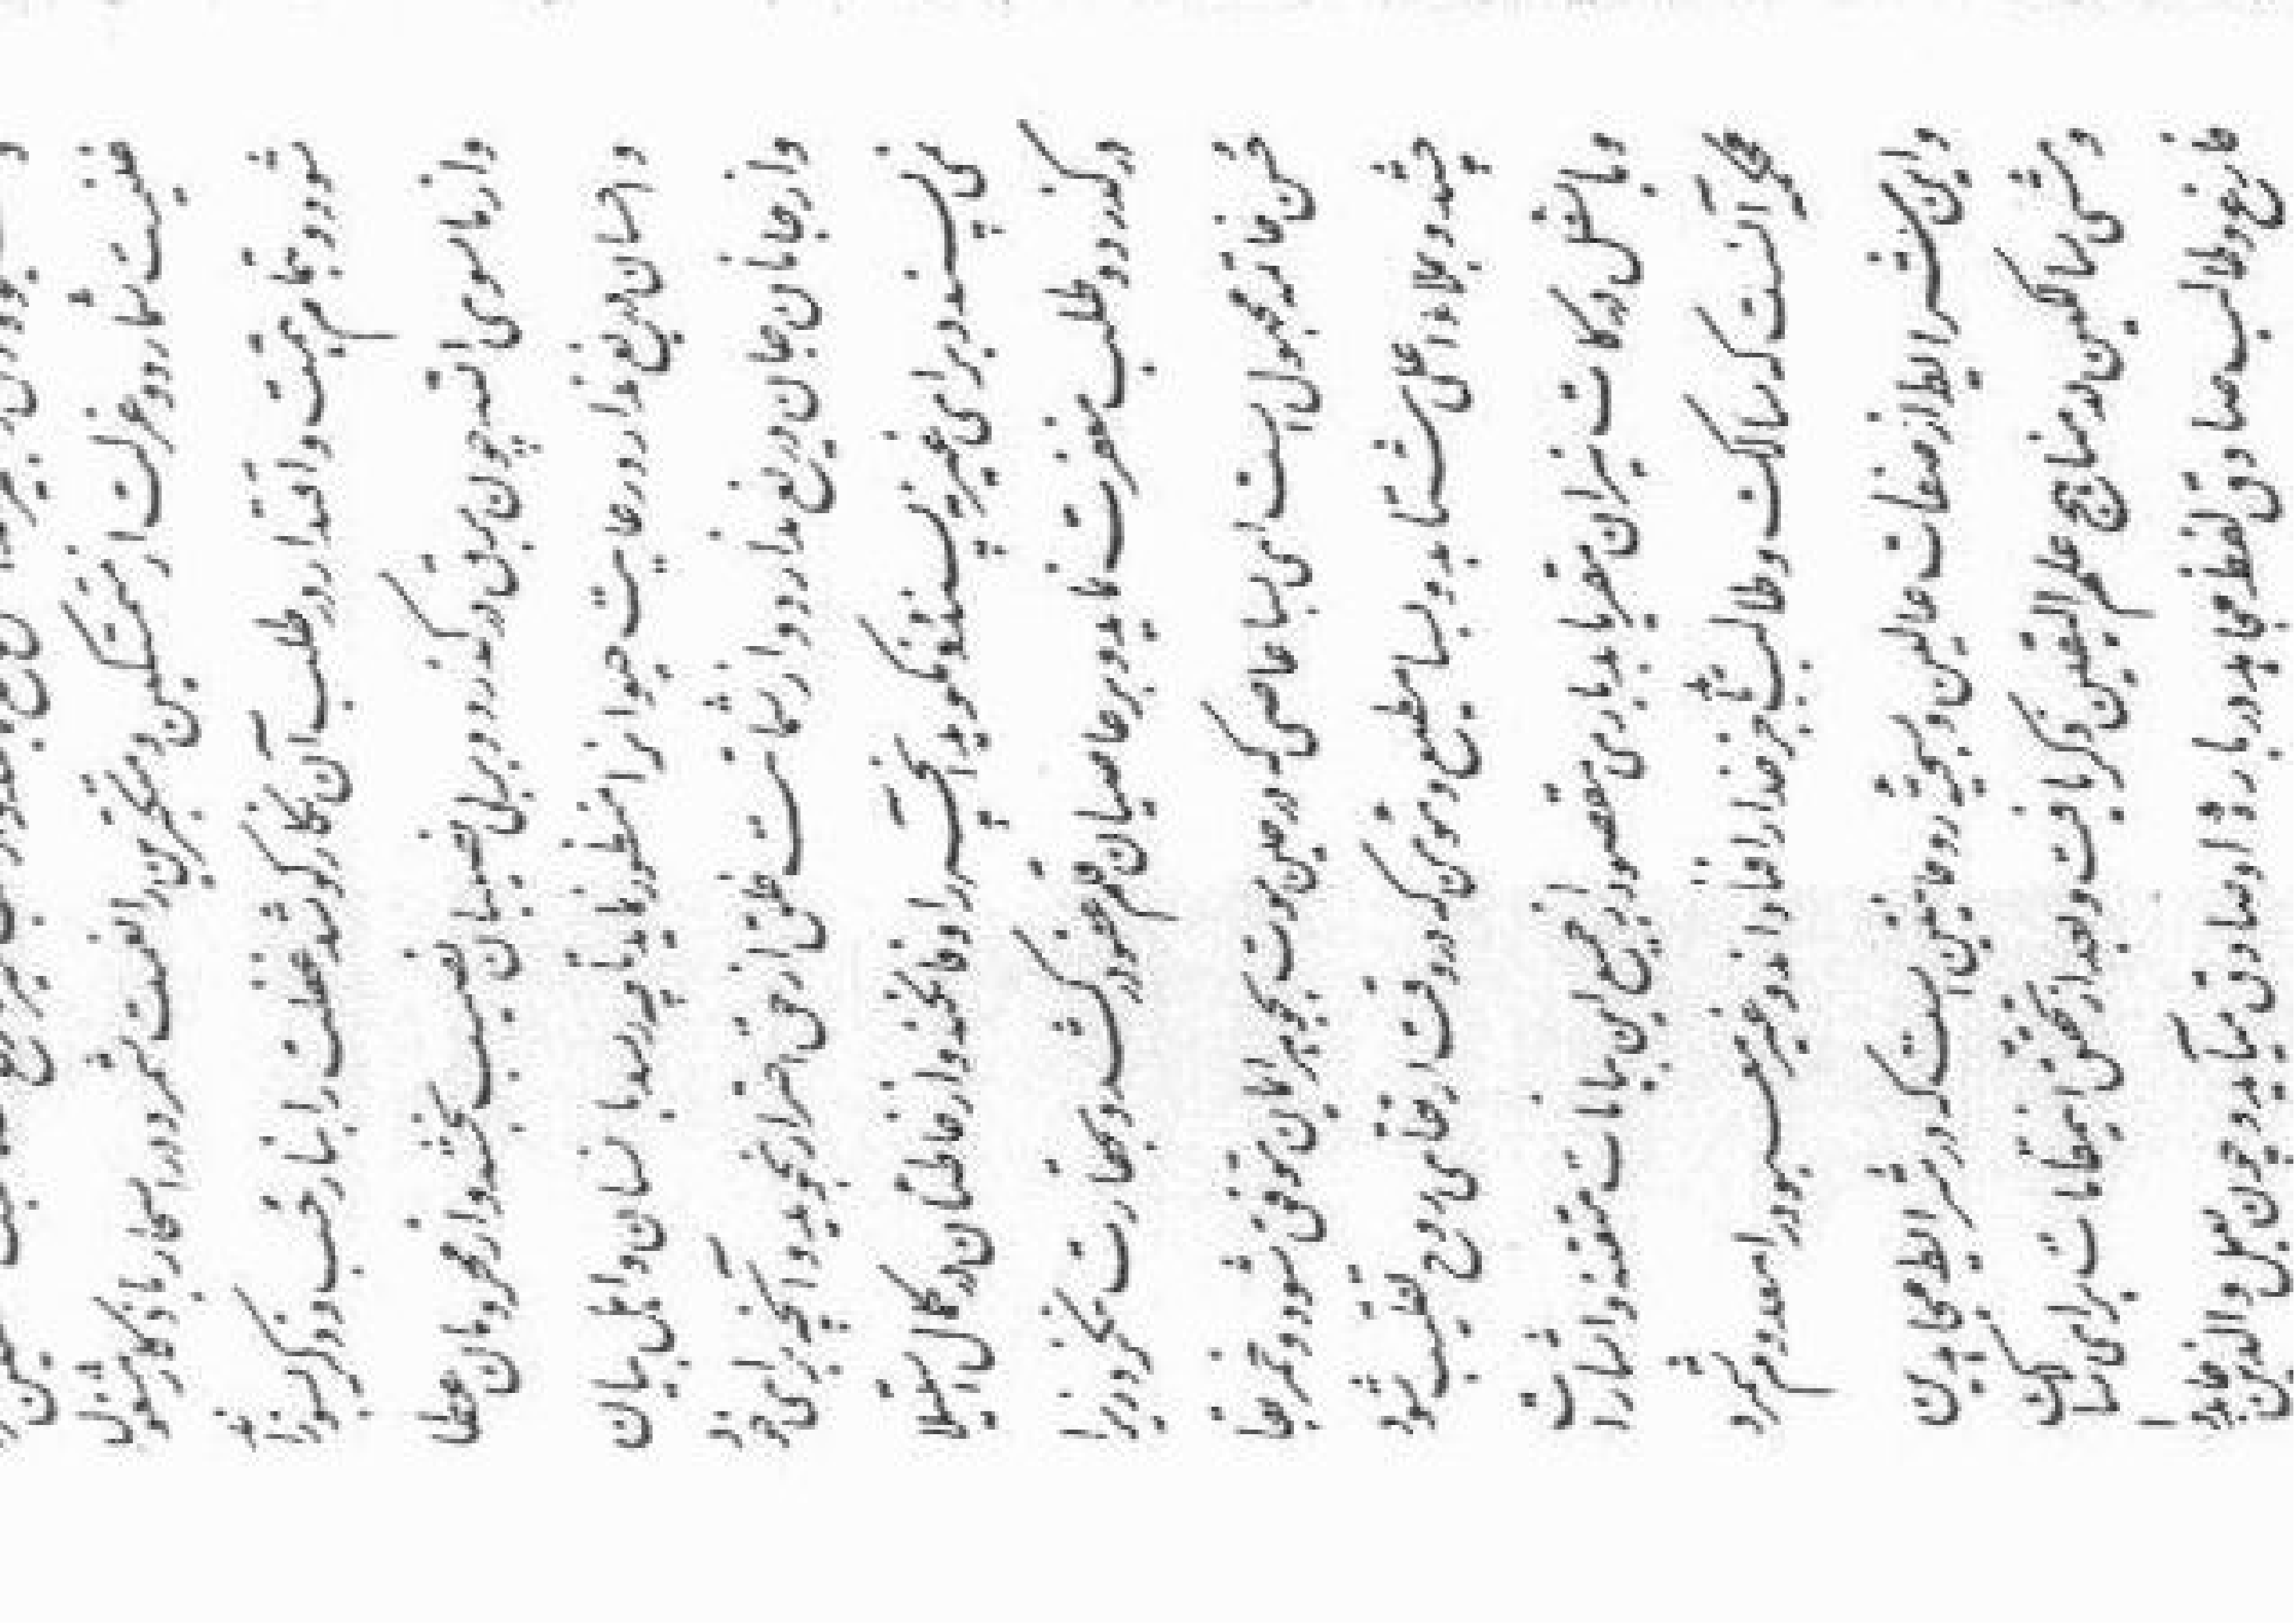 غنیمت شمارد و عزلت از متمسکین و متکبرین را نعمت شمرد در اسحار باذکار مشغول
شود و بتمام همت و اقتدار در طلب آن نگار کوشد غفلت را بنار حب و ذکر بسوزاند
و از ماسوی الله چون برق درگذرد و بر بی نصیبان نصیب بخشد و از محرومان عطا
و احسان دریغ ندارد رعایت حیوان را منظور نماید تا چه رسد بانسان و اهل بیان
و از جانان جان دریغ ندارد و از شماتت خلق از حق احتراز نجوید و آنچه برای خود
نمی پسندد برای غیر نپسندد و نگوید آنچه را وفا نکند و از خاطئان در کمال استیلا
درگذرد و طلب مغفرت نماید و بر عاصیان قلم عفو درکشد و بحقارت ننگرد زیرا
حسن خاتمه مجهول است ای بسا عاصی که در حین موت بجوهر ایمان موفق شود و خمر بقا
چشد و بملاء اعلی شتابد و بسا مطیع و مؤمن که در وقت ارتقای روح تقلیب شود
و باسفل درکات نیران مقر یابد باری مقصود از جمیع این بیانات متقنه و اشارات
محکمه آنست که سالک و طالب باید جز خدا را فنا داند و غیر معبود را معدوم شمرد
و این شرایط از صفات عالین و سجیه روحانیین است که در شرایط مجاهدین
و مشی سالکین در مناهج علم الیقین ذکر یافت و بعد از تحقق این مقامات برای سالک
فارغ و طالب صادق لفظ مجاهد درباره او صادق میآید و چون بعمل والذین جاهدوا